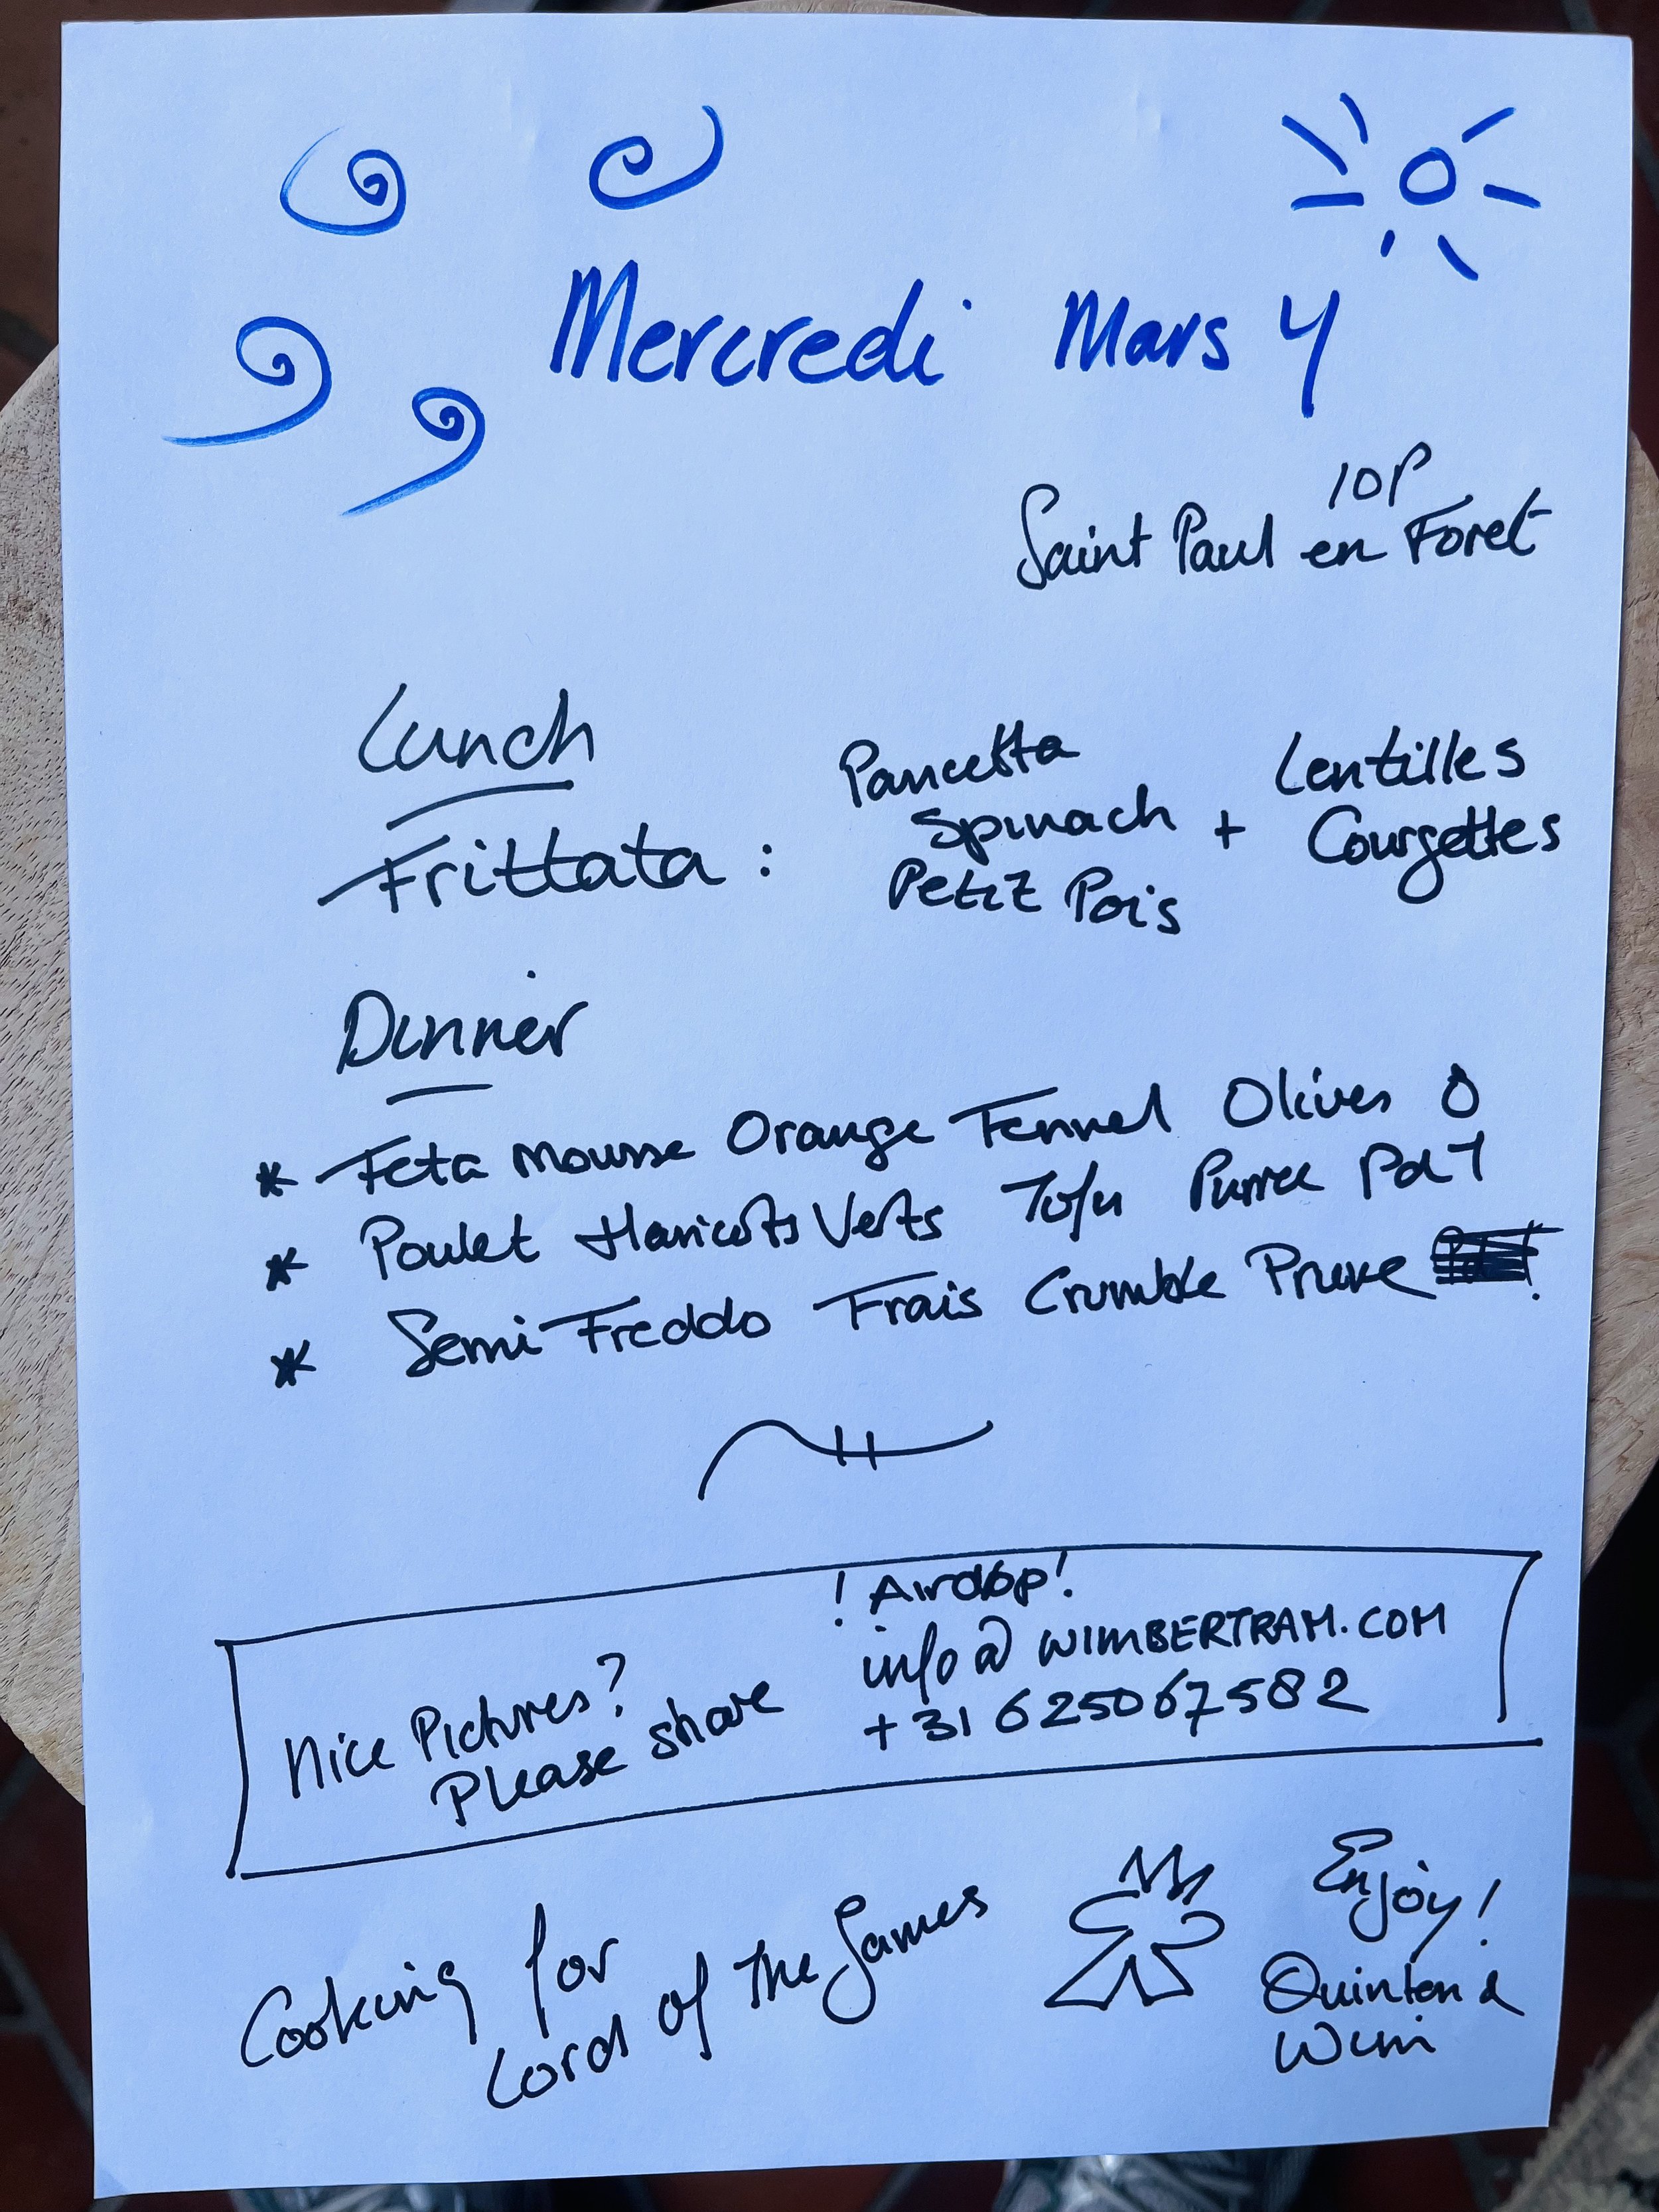 Mercredi Mars 4
10P
Saint Paul en Foret
Lunch
Frittata : Pancetta
Spinach + Lentilles
Petit Pois Courgettes
Dinner
* Feta Mousse Orange Fennel Olives
* Poulet Haricots Verts Tofu Puree PdT
* Semi Freddo Frais Crumble Prune
! Airdrop!
info@WIMBERTRAM.COM
+31 625067582
Nice Pictures?
Please share
Cooking for
Lord of The Games
Enjoy!
Quinten &
Wim